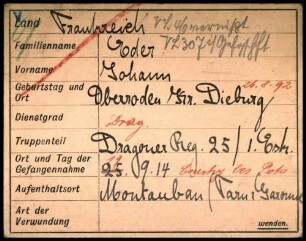 Land Frankreich VL 4/vermißt
VL 307/4
Familienname Eder
Vorname Johann
Geburtstag und 26.8.92
Ort Oberroden Kr. Dieburg
Dienstgrad Drag
Truppenteil Dragoner Reg. 25 / 1. Esk.
Ort und Tag der 19
Gefangennahme 25. 9.14
Aufenthaltsort Montauban / Tarn i Garonne
Art der
Verwundung wenden.